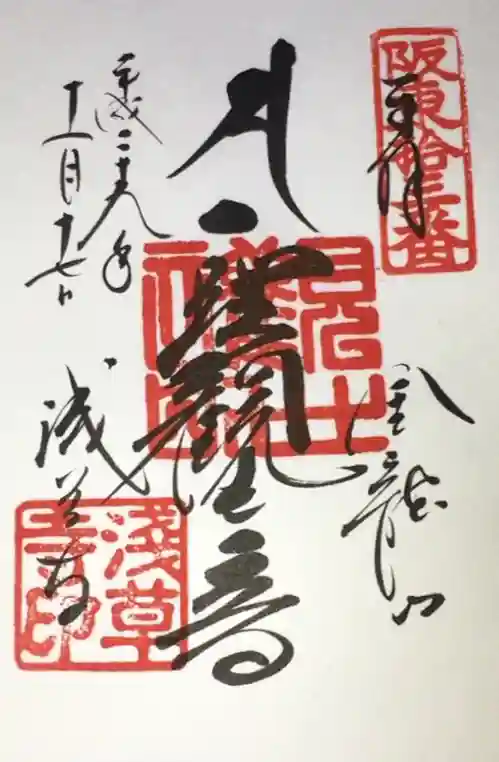 阪東拾三番
奉拝
金龍山
聖観音
平成二十九年
十一月十七日
浅草寺
淺草寺印